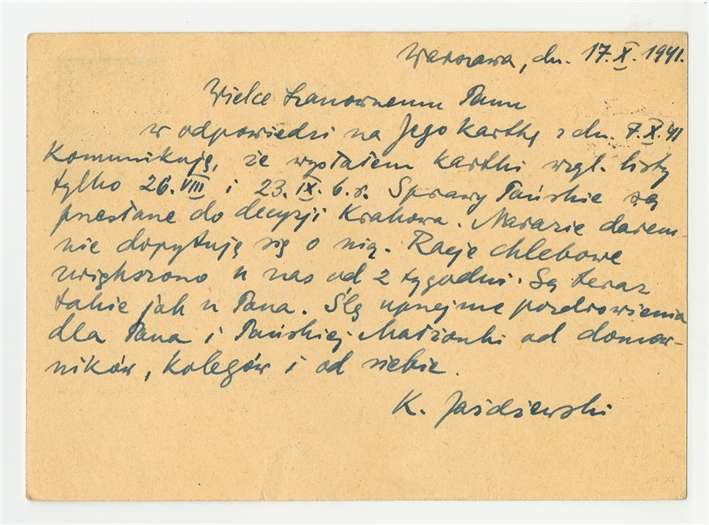 Warszawa, dn. 17.X.1941.
Wielce Szanownemu Panu
w odpowiedzi na Jego kartkę z dn. 7.X.41
komunikuję, że wysłałem kartki wzgl. listy
tylko 26.VIII i 23.IX. b.r. Sprawy Pańskie są
przesłane do decyzji Krakowa. Narazie darem-
nie dopytuję się o nią. Racje chlebowe
zwiększono u nas od 2 tygodni. Są teraz
takie jak u Pana. Ślę uprzejme pozdrowienia
dla Pana i Pańskiej Małżonki od domow-
ników, kolegów i od siebie.
K. Jażdżewski